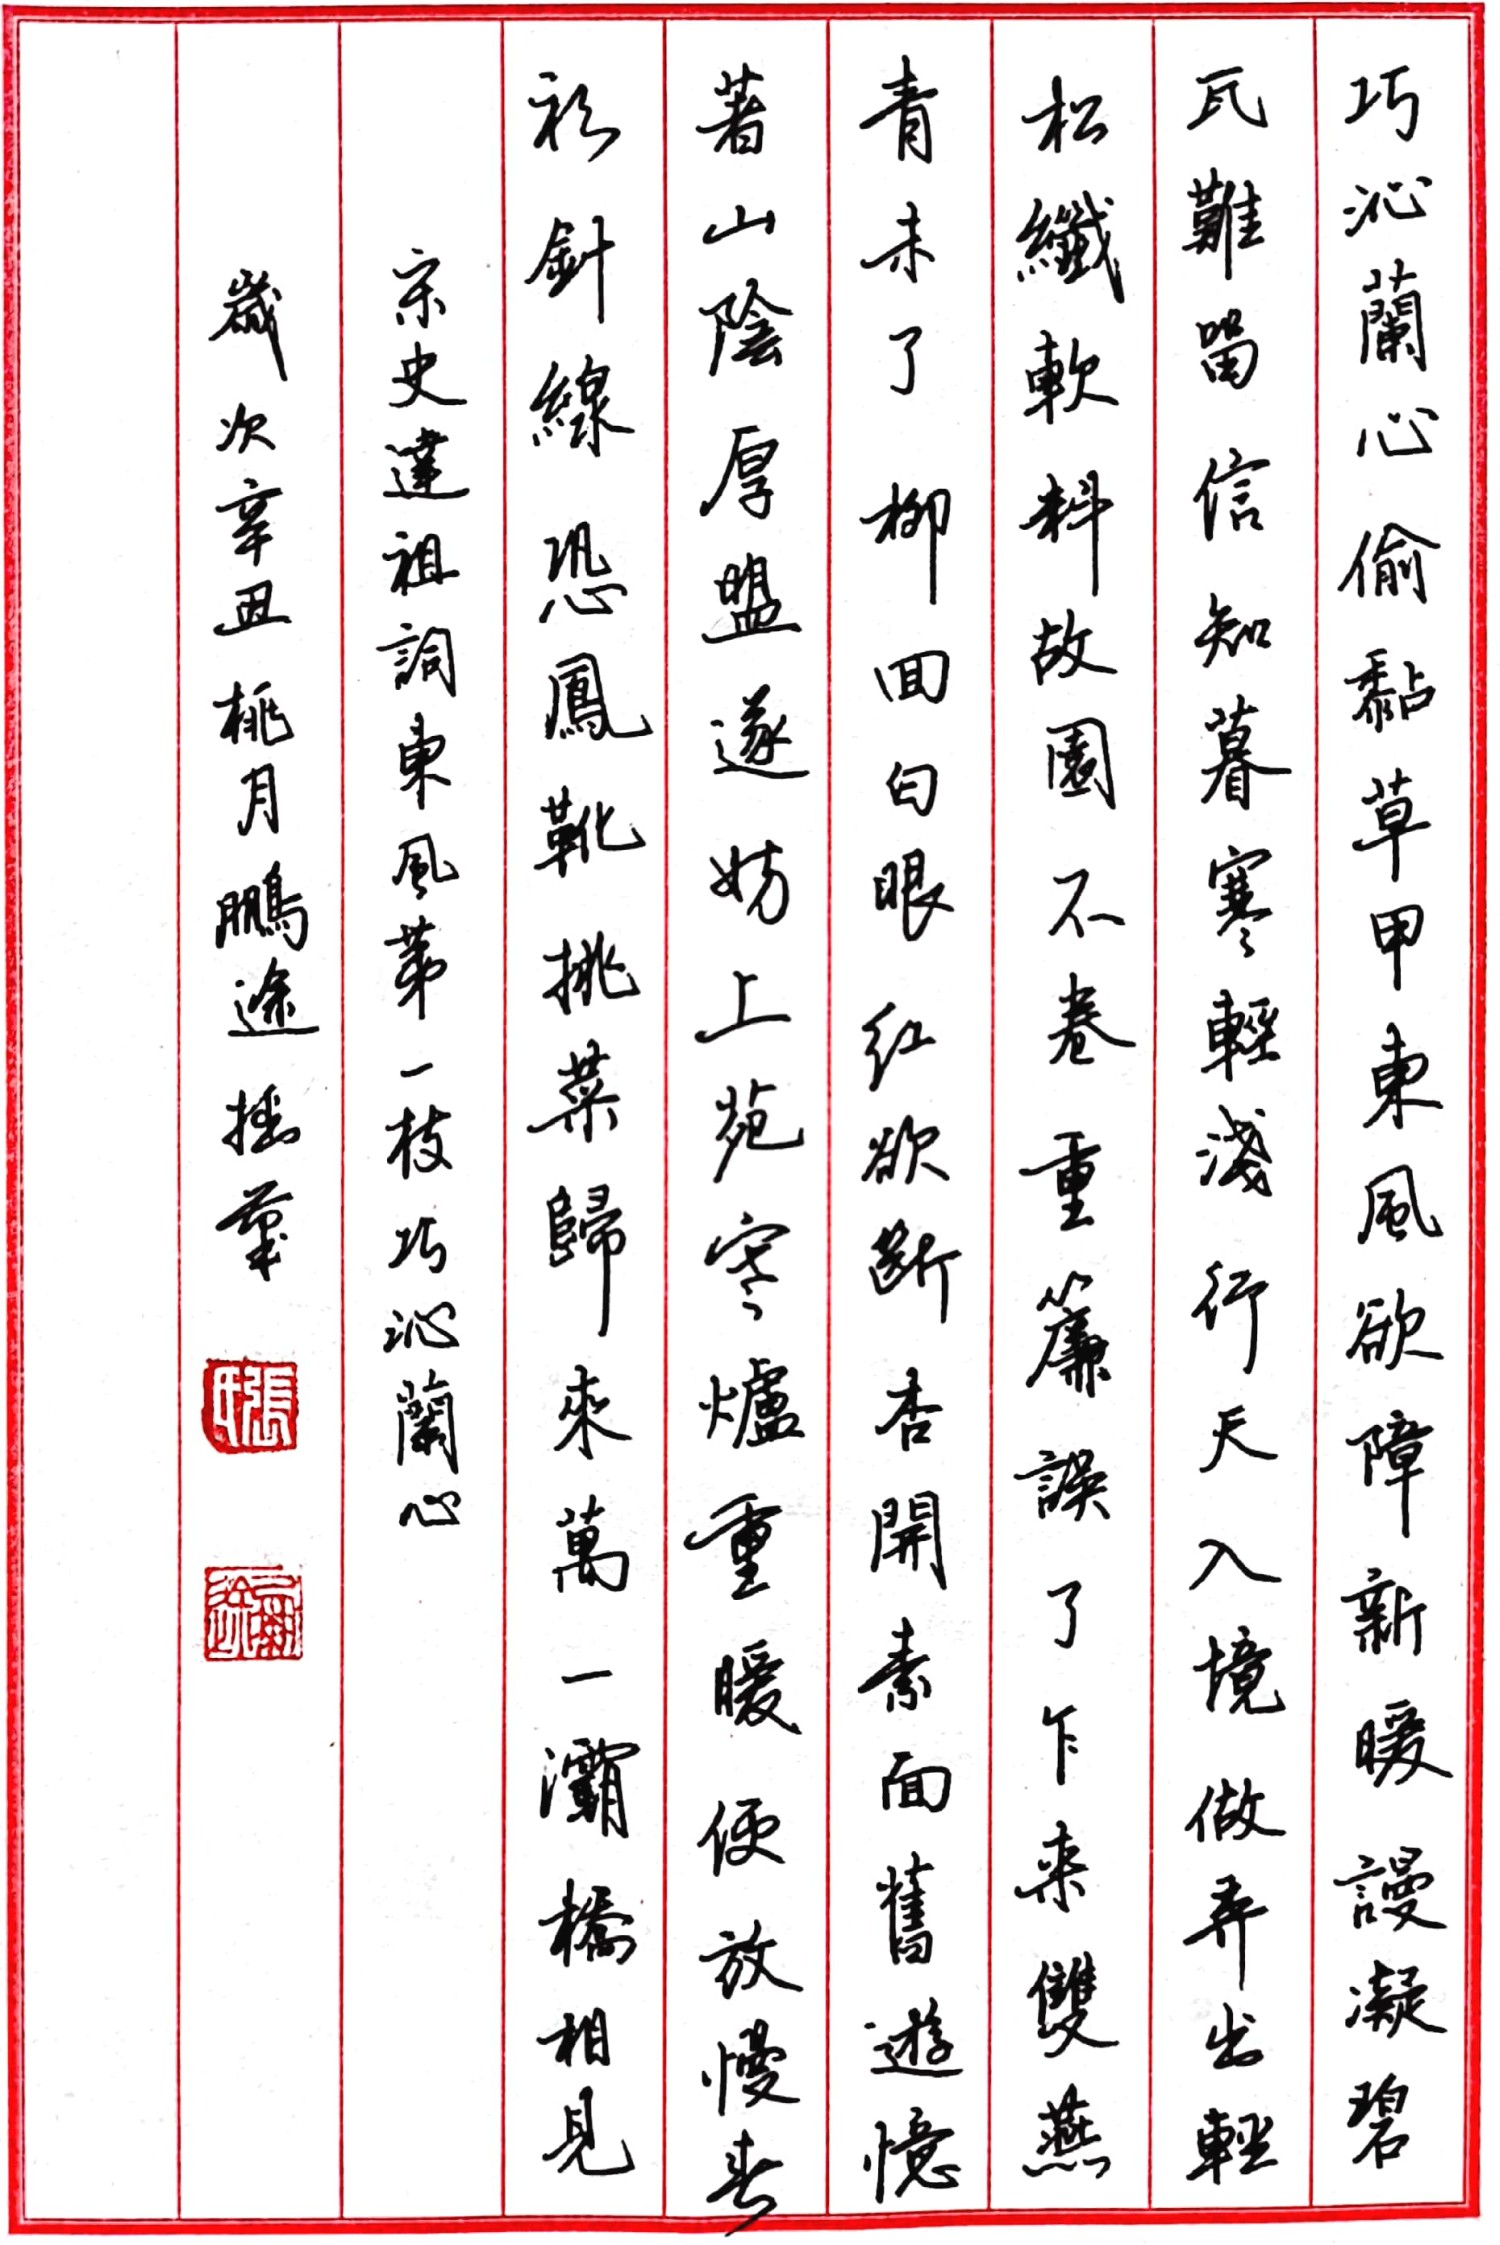 巧沁蘭心偷黏草甲東風欲障新暖謾凝碧
瓦難留信知暮寒輕淺行天入境做弄出輕
松纖軟料故園不卷重簾誤了乍来雙燕
青未了柳回白眼红欲斷杏開素面舊遊憶
著山陰厚盟遂妨上苑寒爐重暖便放慢春
衫針線恐鳳靴挑菜歸來萬一灞橋相見
宋史達祖詞東風第一枝巧沁蘭心
歲次辛丑桃月鵬途拙筆
張氏
鵬途